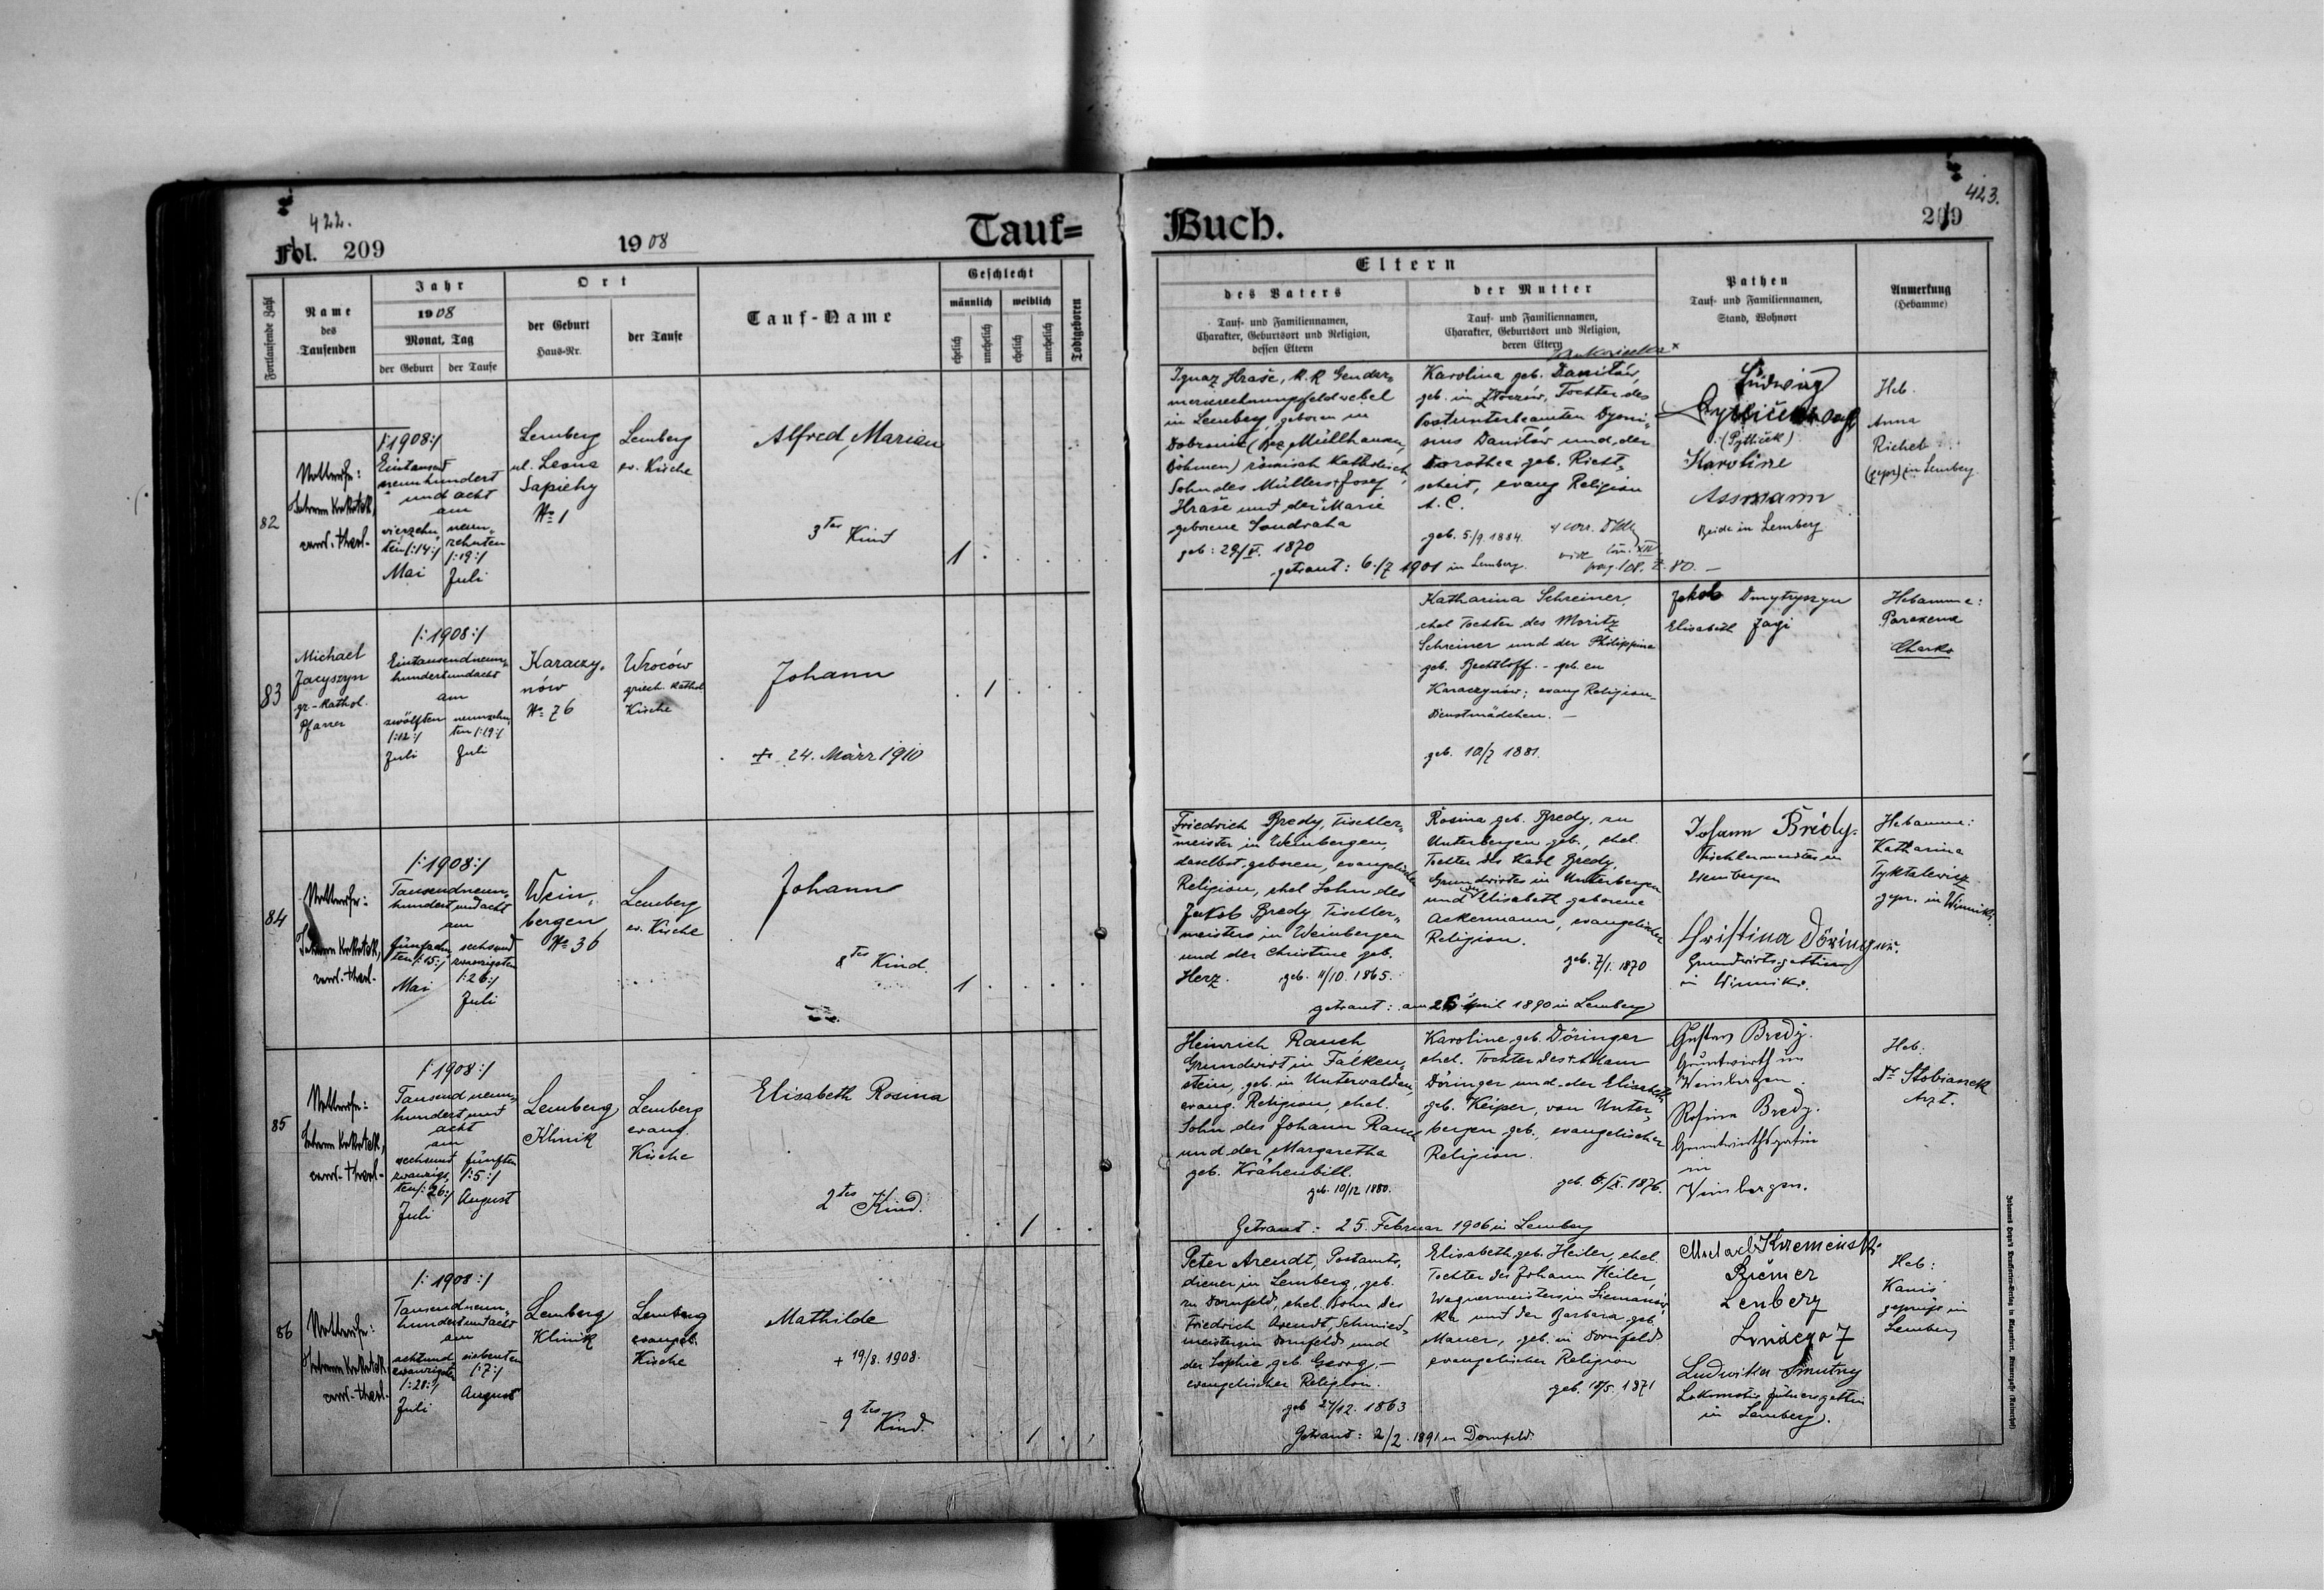 422.
Fol. 209
1908
Tauf=
Fortlaufende Zahl
Name
des
Taufenden
Jahr
1908
Monat, Tag
der Geburt
der Taufe
Ort
der Geburt
Haus-Nr.
der Taufe
Tauf-Name
Geschlecht
männlich
weiblich
ehelich
unehelich
ehelich
unehelich
Todtgeboren
82
cand. theol.
/:1908:/
Eintausend
neunhundert
und acht
am
vierzehn
ten /:14:/
Mai
neun-
zehnten
/:19:/
Juli
Lemberg
ul. Leona
Sapiehy
No 1
Lemberg
ev. Kirche
Alfred, Marian
3tes Kind
1
83
Michael
Jacyszyn
gr-kathol.
Pfarrer
/:1908:/
Eintausendneun-
hundertundacht
am
zwölften
/:12:/
Juli
neunzehn
ten /:19:/
Juli
Karaczy-
nów
No 76
Wroców
griech. kathol.
Kirche
Johann
+ 24. März 1910
1
84
cand. theol.
/:1908:/
Tausendneun-
hundert und acht
am
fünfzehn
ten /:15:/
Mai
sechsund
zwanzigsten
/:26:/
Juli
Wein-
bergen
No 36
Lemberg
ev. Kirche
Johann
8tes Kind.
1
85
cand. theol.
/:1908:/
Tausend neun-
hundert und
acht
am
sechsund
zwanzigs-
ten /:26:/
Juli
fünften
/:5:/
August
Lemberg
Klinik
Lemberg
evang.
Kirche
Elisabeth Rosina
2tes Kind.
1
86
cand. theol.
/:1908:/
Tausendneun-
hundertundacht
am
achtund
zwanzigsten
/:28:/
Juli
siebenten
/:7:/
August
Lemberg
Klinik
Lemberg
evangel.
Kirche
Mathilde
+ 19/8. 1908.
9tes Kind.
1
423.
Buch.
Eltern
des Vaters
Tauf- und Familiennamen,
Charakter, Geburtsort und Religion,
dessen Eltern
der Mutter
Tauf- und Familiennamen,
Charakter, Geburtsort und Religion,
deren Eltern
Pathen
Tauf- und Familiennamen,
Stand, Wohnort
Anmerkung
(Hebamme)
Ignaz Hraše, k. k. Gendar-
merierechnungsfeldwebel
in Lemberg, geboren in
Müllhausen,
Böhmen) römisch katholisch,
Sohn des Müllers + Josef
Hraše und der Marie
geborene
geb: 1870
getraut: 6./7 1901 in Lemberg.
Karolina geb. Danilów,
geb. in Złoczów, Tochter des
Postunterbeamten Dyoni-
sius Danilów und der
Dorothea geb. Richt-
scheit, evang Religion
A. C.
geb. 5/9. 1884.
pag. 108. Z. 80.
Ludwig
(Pytliček)
Karoline
Assmann
Beide in Lemberg
Heb.
Anna
Richeb
(gepr) in Lemberg
Katharina Schreiner,
ehel Tochter des Moritz
Schreiner und der Philippina
geb. Bechtloff. - geb. en
Karaczynów; evang Religion-
Dienstmädchen. -
geb. 10/7 1881.
Jakob Dmytryszyn
Elisabeth Jagi
Hebamme:
Paraxena
Charko
Friedrich Bredy, Tischler-
meister in Weinbergen,
daselbst, geboren, evangelischer
Religion, ehel Sohn des
Jakob Bredy Tischler-
meisters in Weinbergen
und der Christine geb.
Herz. geb. 11/10. 1865.
getraut: am 26 April 1890 in Lemberg
Rosina geb. Bredy, zu
Unterbergen geb., ehel.
Tochter des Karl Bredy,
Grundwirtes in Unterbergen
und der Elisabeth geborene
Ackermann, evangelischer
Religion.
geb. 7/1. 1870
Johann Brédy.
Weinbergen
Christina Döringer.
Grundwirtsgattin
in Winniki.
Hebamme:
Katharina
Tyktalewicz
gepr. in Winniki.
Heinrich Rauch
Grundwirt in Falken-
stein, geb. in Unterwalden,
evang. Religion, ehel.
Sohn des Johann Rauch
und der Margaretha
geb. Krähenbill.
geb. 10/12 1880.
Getraut: 25. Februar 1906 in Lemberg
Karoline geb. Döringer
ehel. Tochter des + Adam
Döringer und der Elisabeth
geb. Keiper, von Unter-
bergen geb., evangelischer
Religion.
geb. 6/X. 1876.
Gustav Bredy.
Grundwirth in
Weinbergen.
Rosina Bredy.
Grundwirthsgatin
in
Weinbergen.
Heb:
Dr Stobianek
Arzt.
Peter Arendt, Postamts-
diener in Lemberg, geb.
zu Dornfeld, ehel. Sohn des
Friedrich Arendt, Schmied-
meisters in Dornfeld und
der Sophie geb. Georg, -
evangelischer Religion.
geb 27/12. 1863
Getraut: 2/2. 1891 in Dornfeld.
Elisabeth geb. Heiler, ehel.
Tochter des Johann Heiler,
Wagnermeisters in Siemanów-
ka und der Barbara, geb.
Mauer, geb. in Dornfeld
evangelischer Religion
geb. 18/5. 1871
Riemer
Lenberg
Ludwika Smutny
in Lemberg.
Heb:
Kanis
geprüft in
Lemberg